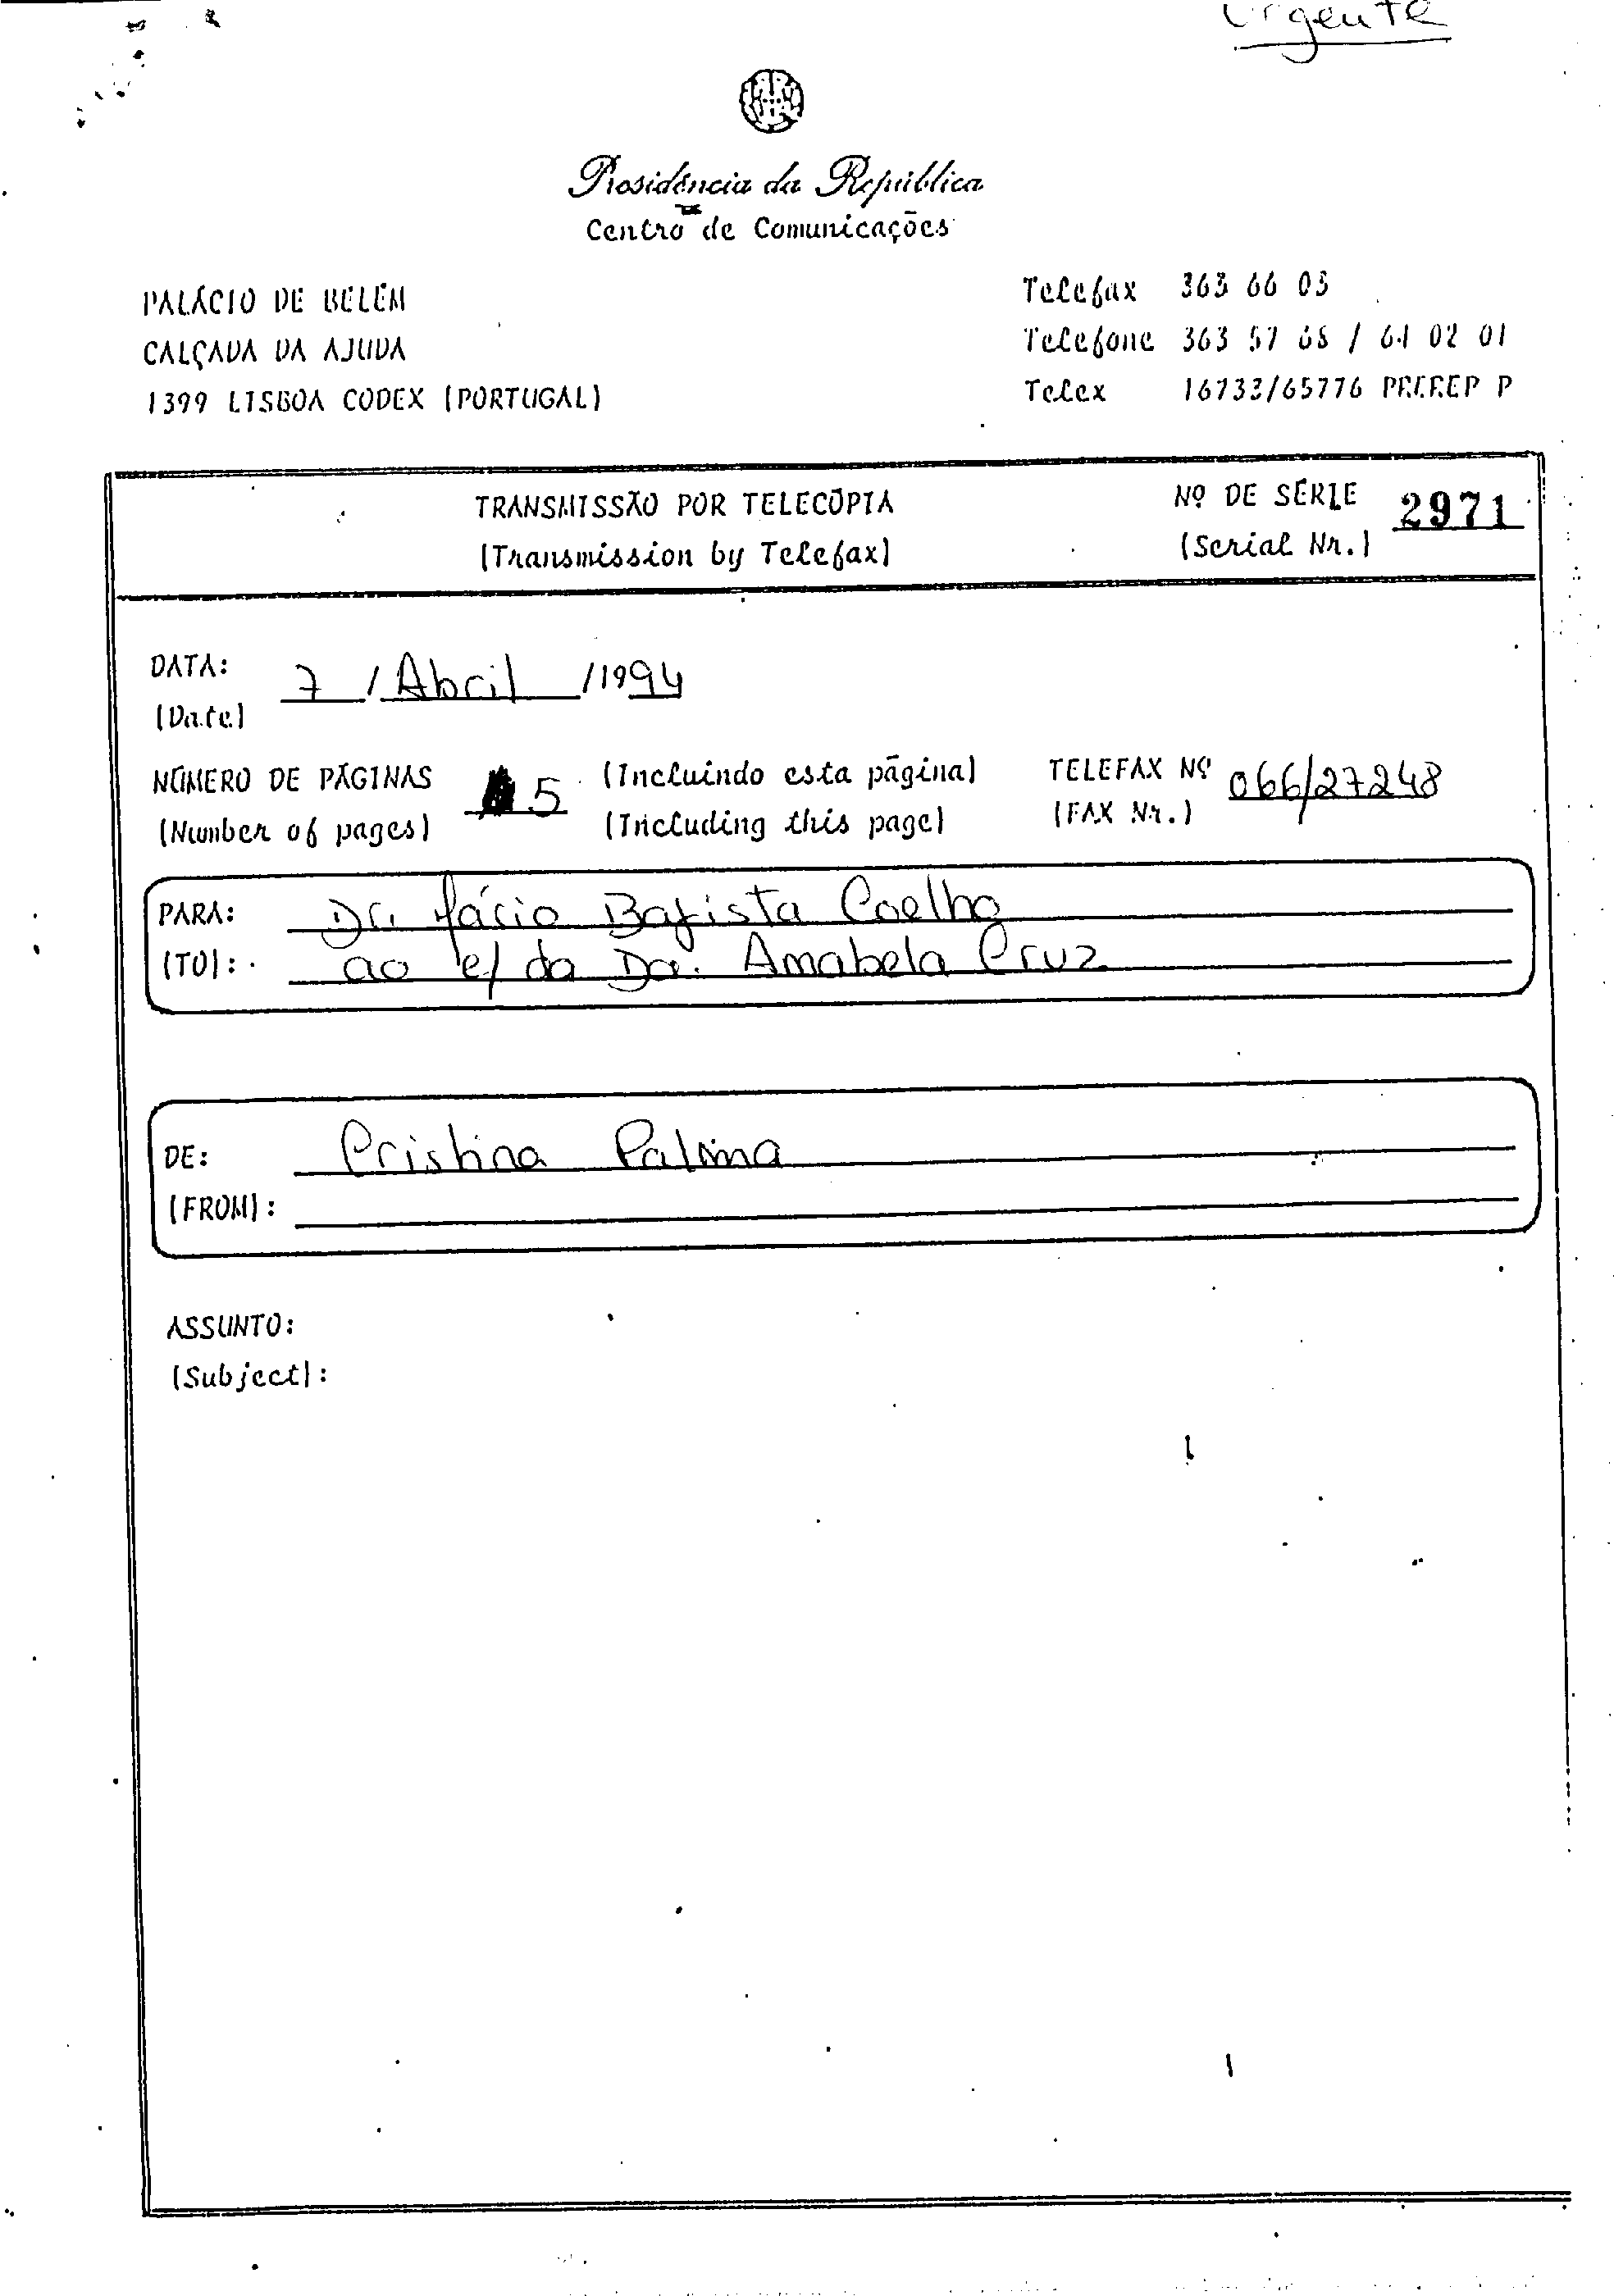 Urgente
Presidência da República
Centro de Comunicações
PALÁCIO DE BELÉM
CALÇADA DA AJUDA
1399 LISBOA CODEX (PORTUGAL)
Telefax 363 66 03
Telefone 363 57 68 / 64 02 01
Telex 16733/65776 P P
TRANSMISSÃO POR TELECÓPIA
(Transmission by Telefax)
Nº DE SÉRIE 2971
(Serial Nr.)
DATA: 7 / Abril / 1994
(Date)
NÚMERO DE PÁGINAS 5 (Incluindo esta página)
(Number of pages) (Including this page)
TELEFAX Nº 066/27248
(FAX Nr.)
PARA: Dr. Batista Coelho
(TO): ao c/ da Dra. Amabela Cruz
DE: Cristina Palma
(FROM):
ASSUNTO:
(Subject):